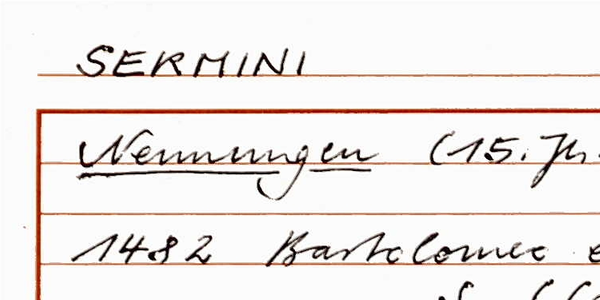 SERMINI
Nennungen (15. Jh.
1482 Bartolomeo e